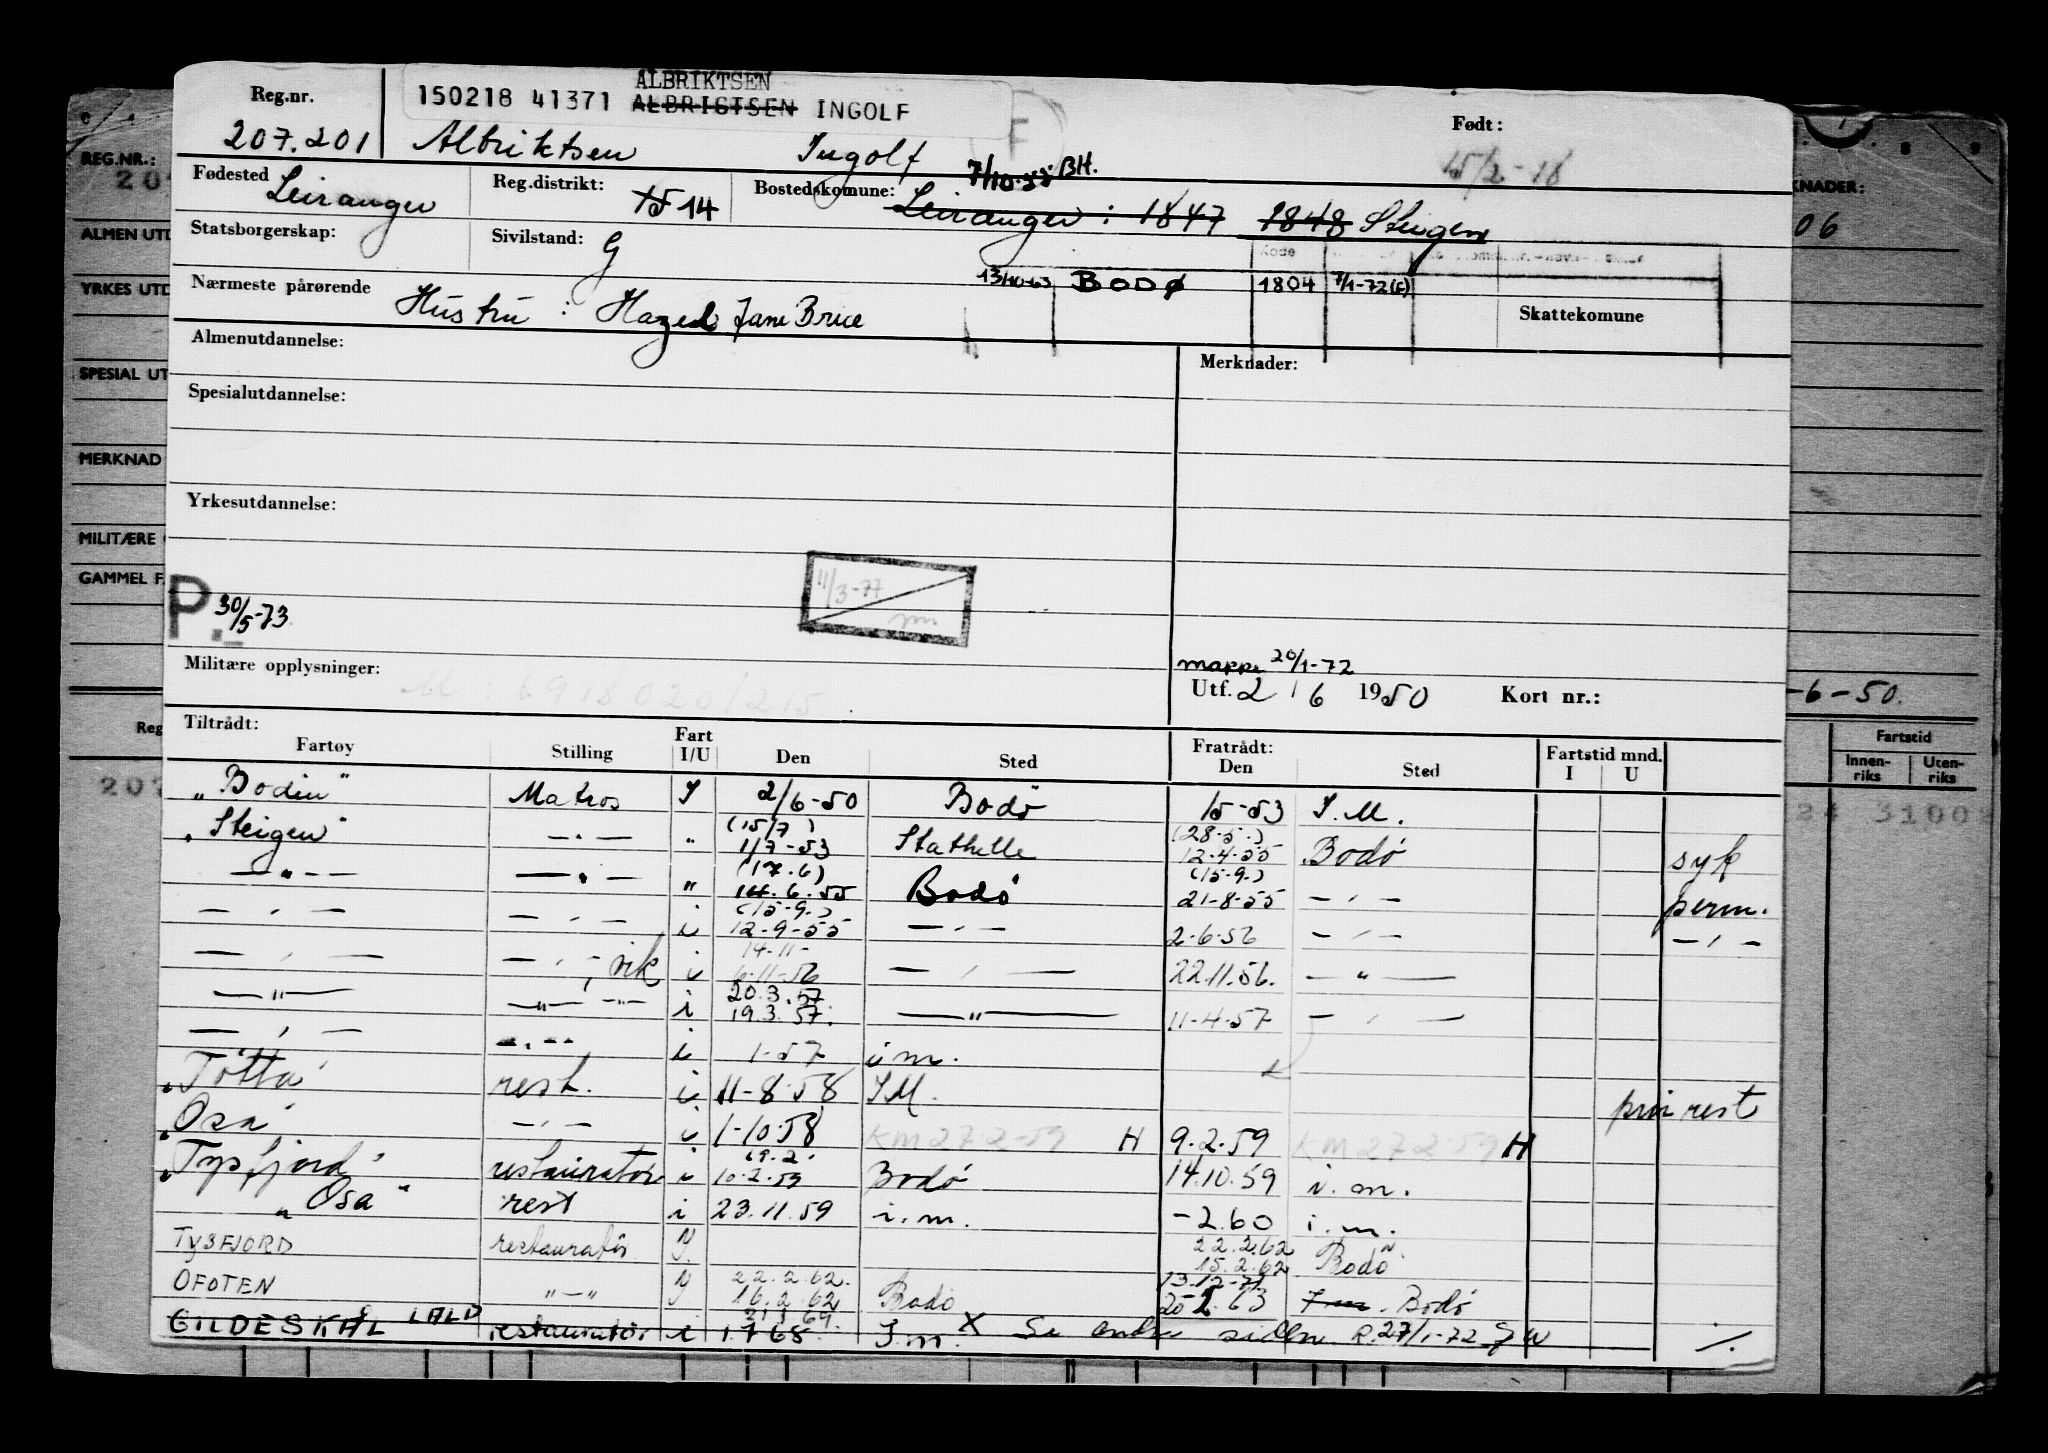 ALBRIKTSEN
Reg.nr. 150218 41371 ALBRIGTSEN INGOLF
207.201 Albriktsen Ingolf F Født: 15/2-18
REG.NR.:
Fødested Leiranger Reg.distrikt: 15 14 Bostedskomune: Leiranger: 1847 7/10-55 BH. 1848 Steigen
ALMEN UTD
Statsborgerskap: Sivilstand: G
Kode
YRKES UTD
Nærmeste pårørende 13/10-63 BODØ 1804 7/1-72 (F)
Hustru: Hazel Jane Brice Skattekomune
Almenutdannelse: Merknader:
SPESIAL UT
Spesialutdannelse:
MERKNAD
Yrkesutdannelse:
MILITÆRE
GAMMEL F.
P. 30/5-73 11/3-77
Militære opplysninger: mappe 20/1-72
Utf. 2 / 6 1950 Kort nr.:
-6-50.
Tiltrådt: Fratrådt:
Fartøy Stilling Fart I/U Den Sted Den Sted Fartstid mnd. I U
Fartstid
Innen-riks Uten-riks
"Bodin" Matros I 2/6-50 Bodø 15-53 I.M.
(15/7) (28-5.)
"Steigen" — " — " 1/7-53 Stathelle 12-4-55 Bodø syk
(17.6) (15-9.)
— " — — " — " 14.6.55 Bodø 21-8-55 — " — perm.
(15-9.)
— " — — " — i 12-9-55 — " — 2-6-56 — " — — " —
14-11-
— " — — " —, vik i 6-11-56 — " — 22.11.56. — " —
20.3.57
— " — — " — — " — i 19.3.57. — " — 11-4-57 — " —
— " — — " — i 1-57 i m.
"Tøtta" rest. i 11-8-58 I M. priv rest
"Osa" — " — i 1-10-58 KM 27 2-59 H 9.2.59 KM 27 2 59 H
19.2.
"Tysfjord" restauratør i 10-2-59 Bodø 14.10.59 i.m.
"Osa" rest i 23.11.59 i.m. -2.60 i.m.
22.2.62
TYSFJORD restauratør 15.2.62 Bodø
22.2.62. 13.12-71
OFOTEN " — " 16.2.62 Bodø 63 Bodø
GILDESKÅL restauratør i 1.7 68. I.m. X Se andre siden R. 27/1-72 ./.